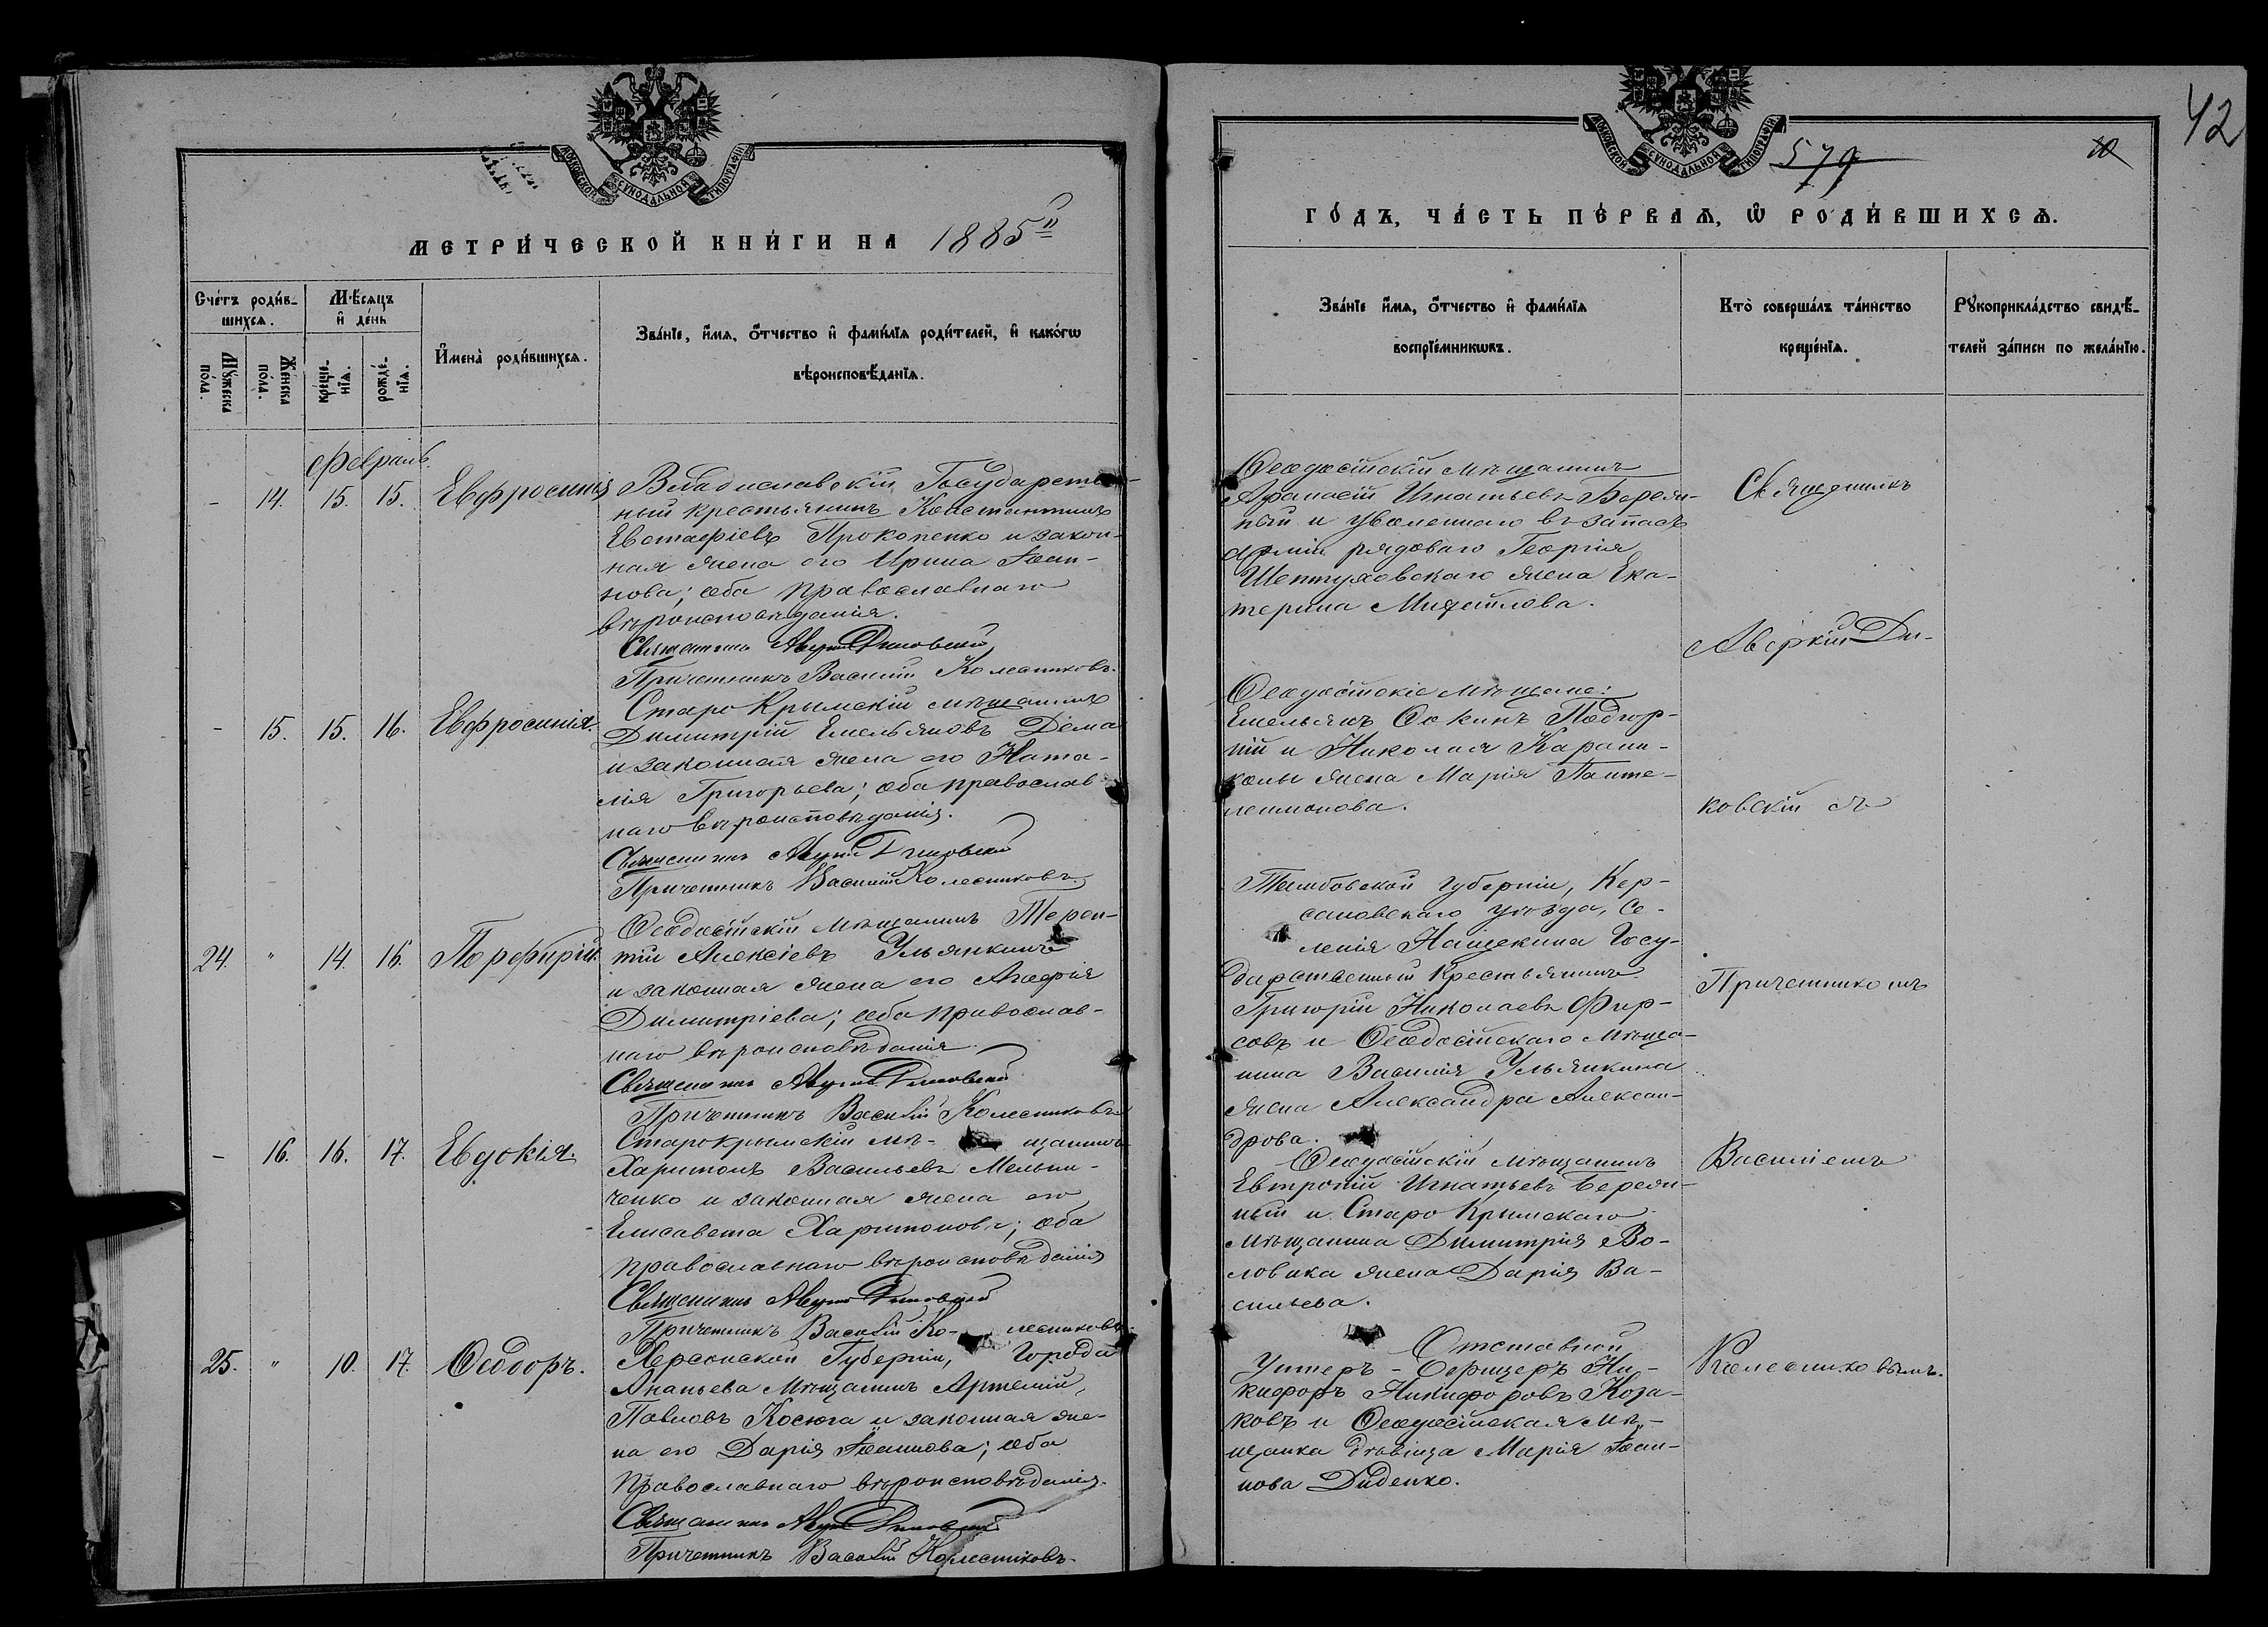 МОСКОВСКОЙ СѴНОДАЛЬНОЙ ТИПОГРАФІИ
МЕТРИ́ЧЕСКОЙ КНИ́ГИ НА 1885й
Сче́тъ роди́в-
шихсѧ.
Мѣ́сѧцъ
и҆ де́нь
Мꙋ́жеска
по́ла.
Же́нска
по́ла.
креще́-
нїѧ.
рожде́-
нїѧ.
И҆мена̀ роди́вшихсѧ.
Зва́нїе, и҆́мѧ, ѻ҆́тчество и҆ фами́лїѧ роди́телей, и҆ како́гѡ
вѣроисповѣ́данїѧ.
Февраль.
- 14. 15. 15. Евфросинія
Владиславскій Государствен-
ный крестьянинъ Константинъ
Евстафіевъ Прокопенко и закон-
ная жена его Ирина Іоан-
нова; оба православнаго
вѣроисповѣданія.
Священникъ Аверкій Диковскій
Причетникъ Василій Колесниковъ.
- 15. 15. 16. Евфросинія.
Старо Крымскій мѣщанинъ
Димитрій Емельяновъ Дема
и законная жена его Ната-
лія Григорьева; оба православ-
наго вѣроисповѣданія.
Священникъ Аверкій Диковскій
Причетникъ Василій Колесниковъ.
24. " 14. 16. Порфирій.
Ѳеодосійскій мѣщанинъ Терен-
тій Алексіевъ Ульянкинъ
и законная жена его Агафія
Димитріева; оба православ-
наго вѣроисповѣданія.
Священникъ Аверкій Диковскій
Причетникъ Василій Колесниковъ
- 16. 16. 17. Евдокія.
Старокрымскій мѣ- щанинъ
Харитонъ Васильевъ Мельни-
ченко и законная жена его
Елисавета Харитонова; оба
православнаго вѣроисповѣданія
Священникъ Аверкій Диковскій
Причетникъ Василій Ко- лесниковъ.
25. " 10. 17. Ѳеодоръ.
Херсонской Губерніи, Города
Ананьева Мѣщанинъ Артемій
Павловъ Косюга и законная же-
на его Дарія Іоаннова; оба
Православнаго вѣроисповѣданія.
Священникъ Аверкій Диковскій
Причетникъ Василій Колесниковъ.
42
МОСКОВСКОЙ СѴНОДАЛЬНОЙ ТИПОГРАФІИ
579
10
ГО́ДЪ, ЧА́СТЬ ПЕ́РВАѦ, Ѡ҆ РОДИ́ВШИХСѦ.
Зва́нїе и҆́мѧ, ѻ҆́тчество и҆ фами́лїѧ
воспрїе́мникѡвъ.
Кто̀ соверша́лъ та́инство
креще́нїѧ.
Рꙋкоприкла́дство свидѣ́-
телей за́писи по жела́нїю.
Ѳеодосійскій мѣщанинъ
Аѳанасій Игнатьевъ Бережи-
ный и уволеннаго въ запасъ
арміи рядоваго Георгія
Шептуховскаго жена Ека-
терина Михайлова.
Ѳеодосійскіе мѣщане:
Емельянъ Ѳокинъ Подгор-
ній и Николая Карани-
колы жена Марія Панте-
леимонова.
Тамбовской губерніи, Кир-
сановскаго уѣзда, Се-
ленія Нащекина Госу-
дарственный Крестьянинъ
Григорій Николаевъ Фир-
совъ и Ѳеодосійскаго мѣща-
нина Василія Ульянкина
жена Александра Алексан-
дрова.
Ѳеодосійскій мѣщанинъ
Евтропій Игнатьевъ Бережи-
ный и Старо Крымскаго
мѣщанина Димитрія Во-
ловика жена Дарія Ва-
сильева.
Отставной
Унтеръ-Офицеръ Ни-
кифоръ Никифоровъ Коза-
ковъ и Ѳеодосійская мѣ-
щанка дѣвица Марія Іоан-
нова Диденко.
Священникъ
Аверкій Ди-
ковскій съ
Причетникомъ
Василіемъ
Колесниковымъ.